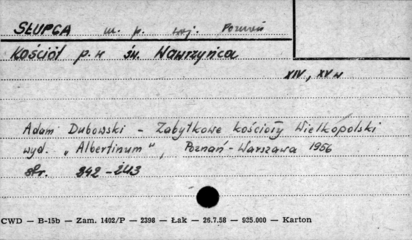 SŁUPCA m. p. woj. Poznań
Kościół p.w św. Wawrzyńca
XIV, XV w
Adam Dubowski - Zabytkowe kościoły Wielkopolski
wyd. „Albertinum", Poznań-Warszawa 1956
str. 242-243
CWD — B-15b — Zam. 1402/P — 2398 — Łak — 26.7.58 — 535.000 — Karton